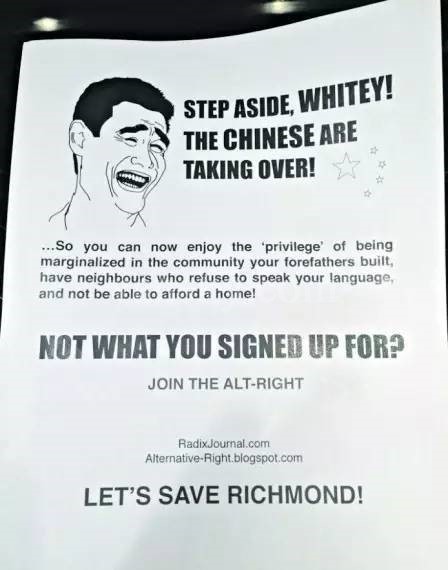 STEP ASIDE, WHITEY!
THE CHINESE ARE
TAKING OVER!
...So you can now enjoy the 'privilege' of being
marginalized in the community your forefathers built,
have neighbours who refuse to speak your language,
and not be able to afford a home!
NOT WHAT YOU SIGNED UP FOR?
JOIN THE ALT-RIGHT
RadixJournal.com
Alternative-Right.blogspot.com
LET'S SAVE RICHMOND!